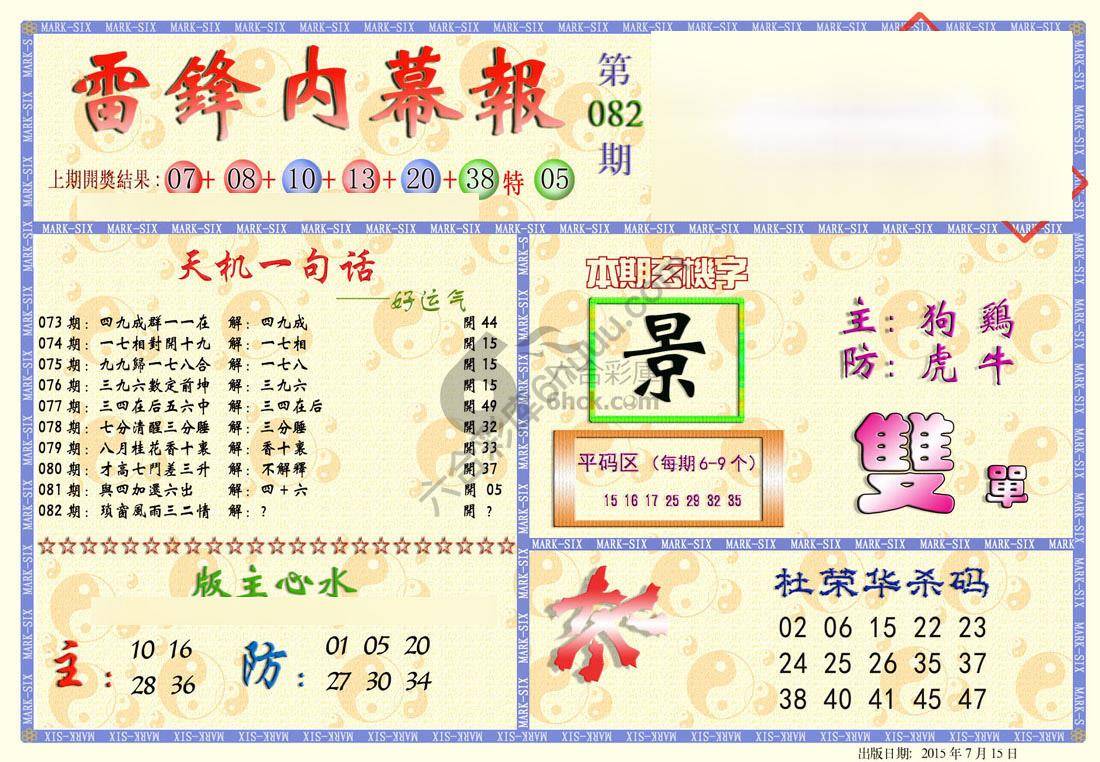 雷鋒内幕報
第
082
期
上期開獎結果：07+08+10+13+20+38特05
天机一句话
——好运气
073期：四九成群一一在 解：四九成 開44
074期：一七相對開十九 解：一七相 開15
075期：九九歸一七八合 解：一七八 開15
076期：三九六數定前坤 解：三九六 開15
077期：三四在后五六中 解：三四在后 開49
078期：七分清醒三分睡 解：三分睡 開32
079期：八月桂花香十裏 解：香十裏 開33
080期：才高七鬥差三升 解：不解釋 開37
081期：與四加還六出 解：四+六 開 05
082期：瑣窗風雨三二情 解：？ 開 ？
☆☆☆☆☆☆☆☆☆☆☆☆☆☆☆☆☆☆☆☆☆☆☆
版主心水
主： 10 16
28 36
防： 01 05 20
27 30 34
本期玄機字
景
平码区（每期6-9个）
15 16 17 25 28 32 35
主：狗 鷄
防：虎 牛
雙 單
杜荣华杀码
02 06 15 22 23
24 25 26 35 37
38 40 41 45 47
出版日期: 2015年7月15日
MARK-SIX
六合彩庫
6hck.com